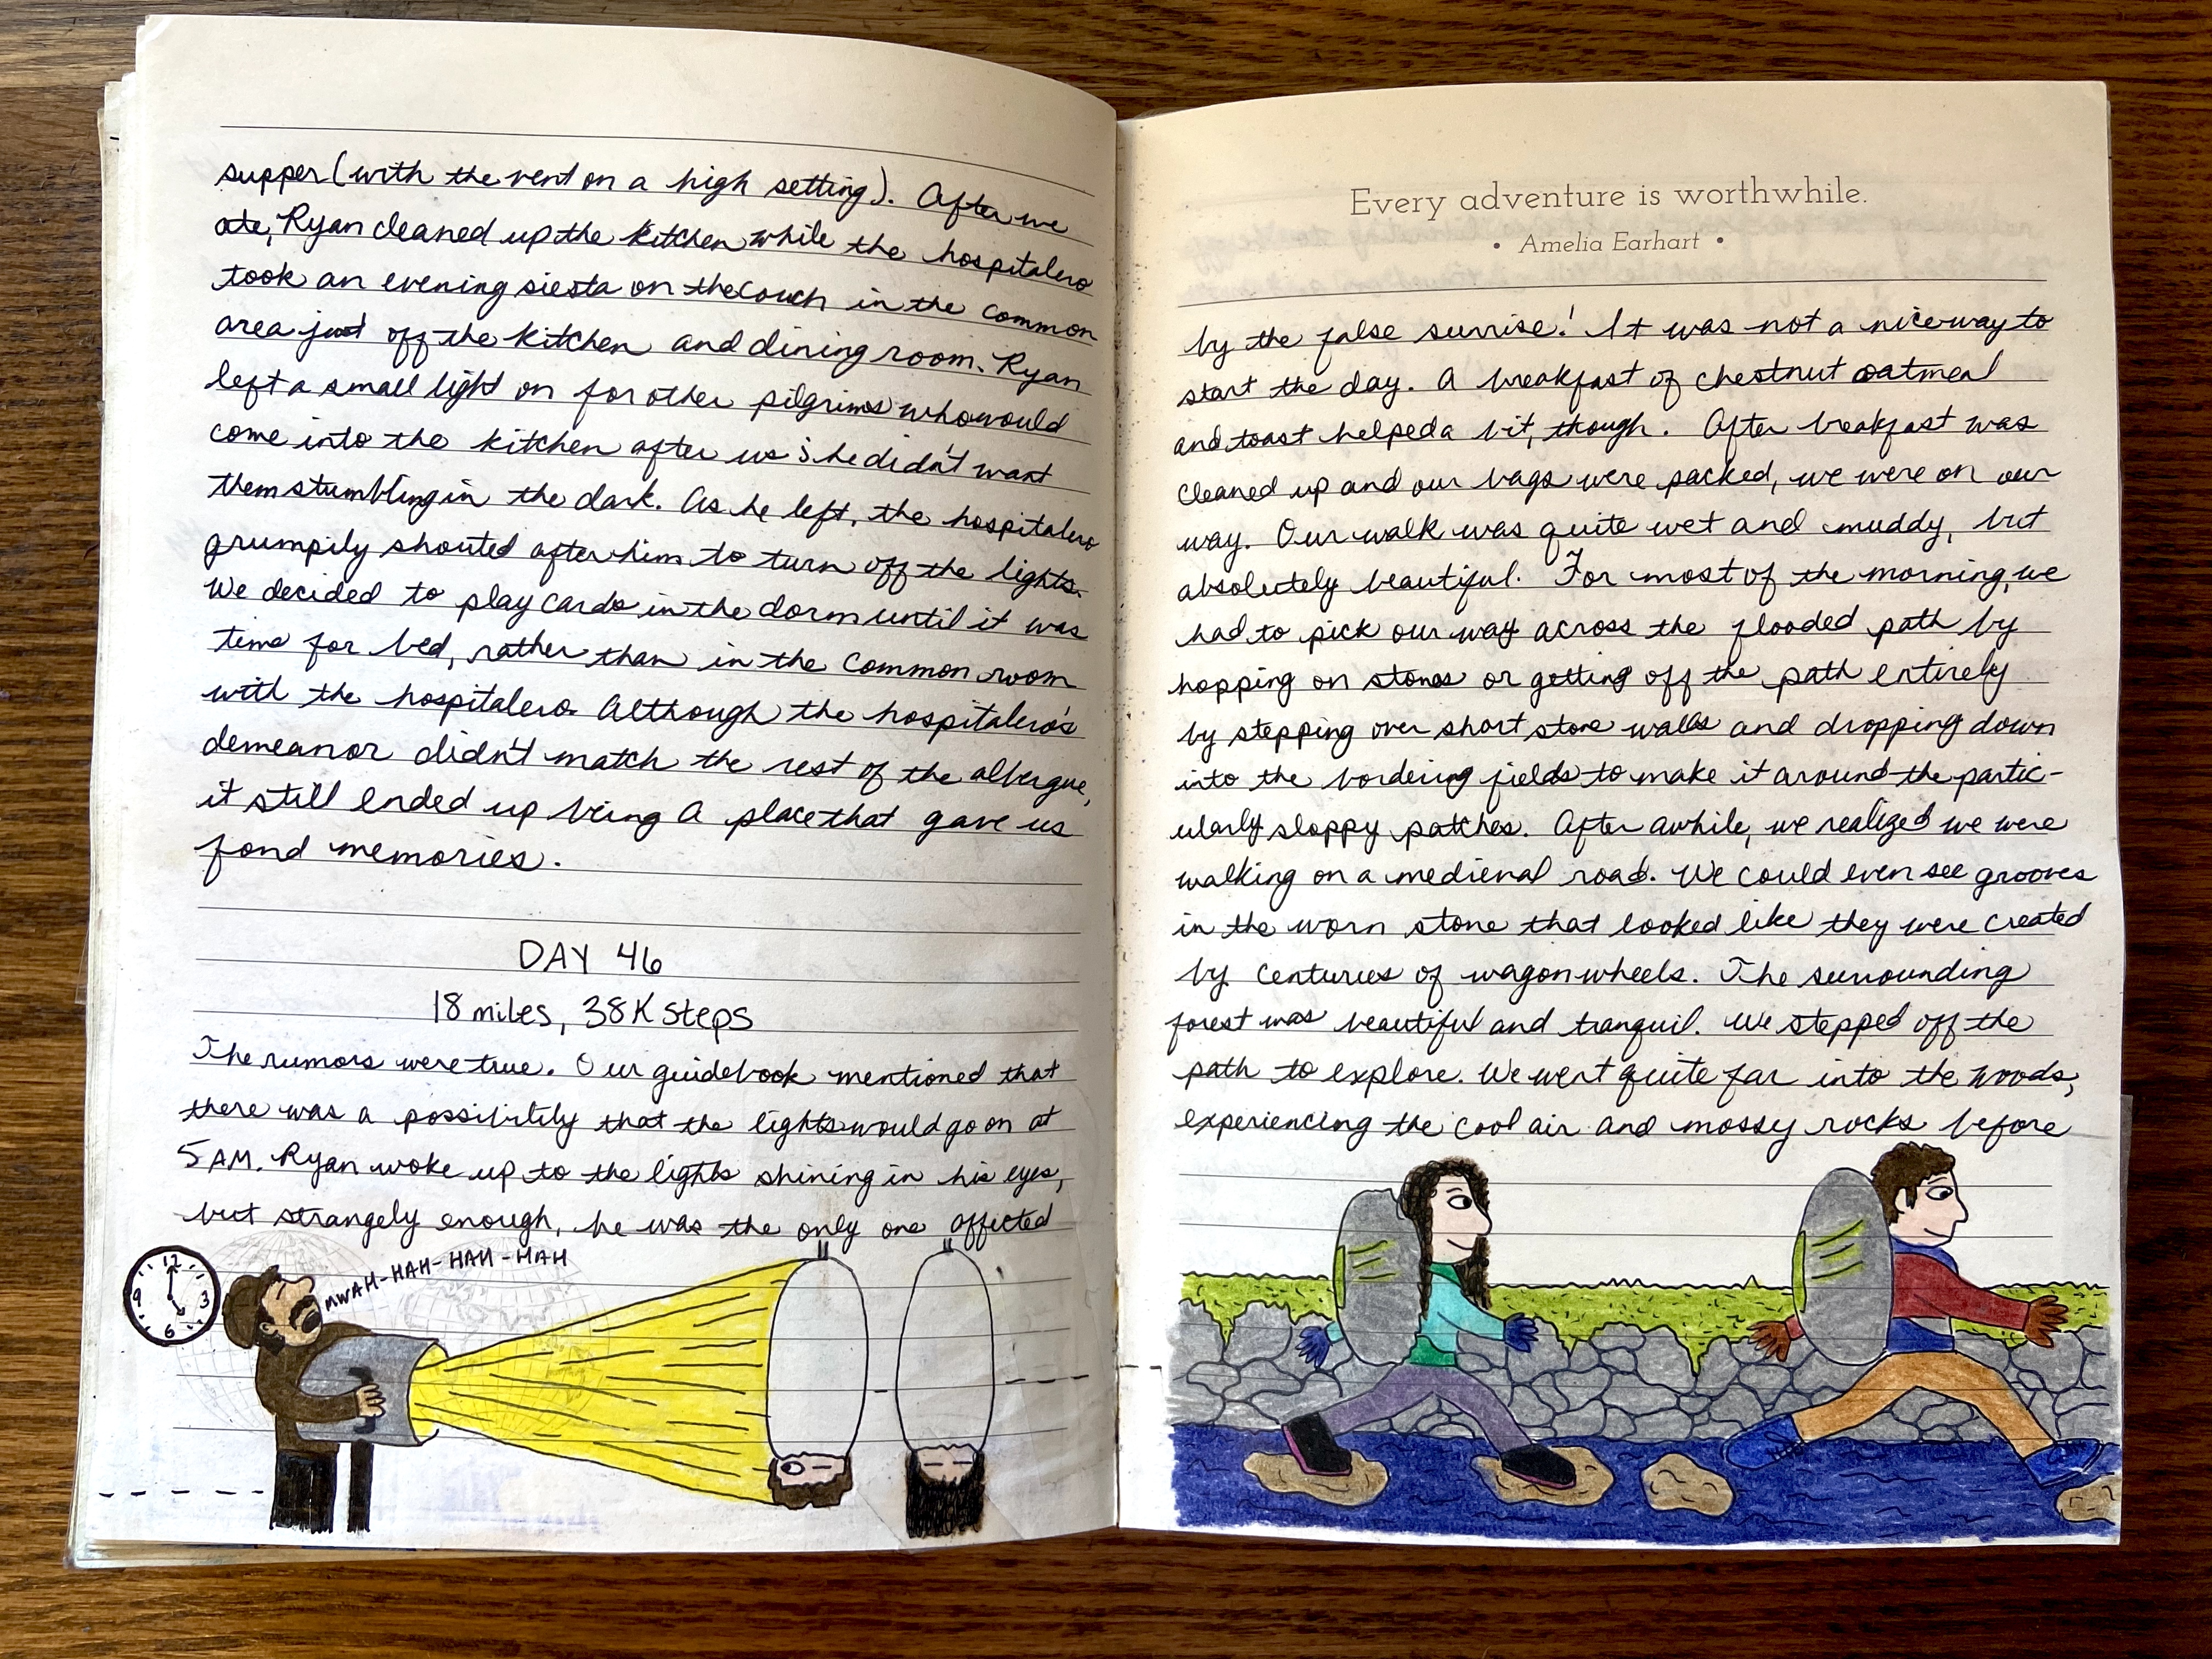 supper (with the vent on a high setting). After we
ate, Ryan cleaned up the kitchen while the hospitalero
took an evening siesta on the couch in the common
area just off the kitchen and dining room. Ryan
left a small light on for other pilgrims who would
come into the kitchen after us; he didn't want
them stumbling in the dark. As he left, the hospitalero
grumpily shouted after him to turn off the lights.
We decided to play cards in the dorm until it was
time for bed, rather than in the common room
with the hospitalero. Although the hospitalero's
demeanor didn't match the rest of the albergue,
it still ended up being a place that gave us
fond memories.
DAY 46
18 miles, 38K steps
The rumors were true. Our guidebook mentioned that
there was a possibility that the lights would go on at
5 AM. Ryan woke up to the lights shining in his eyes,
but strangely enough, he was the only one affected
12
9 3
6
MWAH-HAH-HAH-HAH
Every adventure is worthwhile.
• Amelia Earhart •
by the false sunrise! It was not a nice way to
start the day. A breakfast of chestnut oatmeal
and toast helped a bit, though. After breakfast was
cleaned up and our bags were packed, we were on our
way. Our walk was quite wet and muddy, but
absolutely beautiful. For most of the morning, we
had to pick our way across the flooded path by
hopping on stones or getting off the path entirely
by stepping over short stone walls and dropping down
into the bordering fields to make it around the partic-
ularly sloppy patches. After awhile, we realized we were
walking on a medieval road. We could even see grooves
in the worn stone that looked like they were created
by centuries of wagon wheels. The surrounding
forest was beautiful and tranquil. We stepped off the
path to explore. We went quite far into the woods,
experiencing the cool air and mossy rocks before